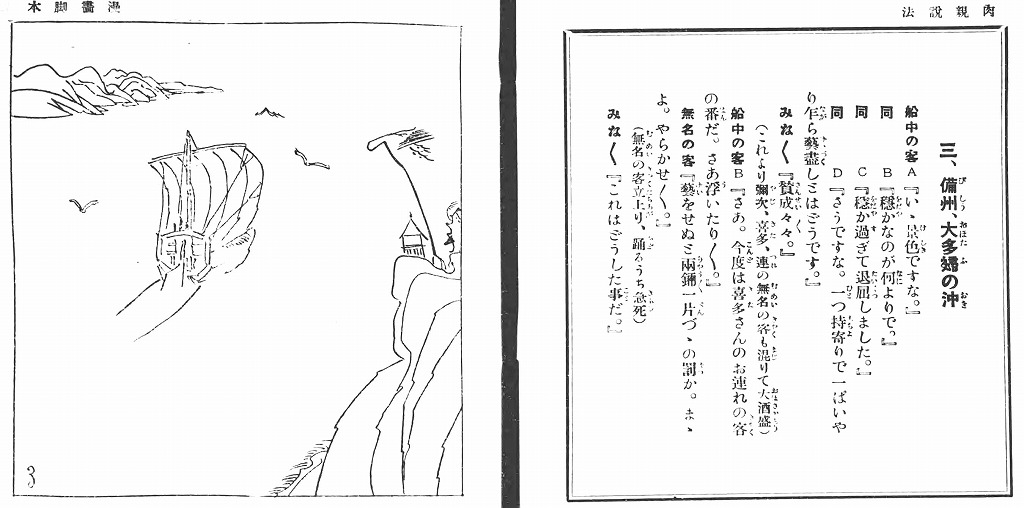 肉親説法
三、備州、大多婦の沖
船中の客A『いゝ景色ですな。』
同　B『穩かなのが何よりで。』
同　C『穩か過ぎて退屈しました。』
同　D『さうですな。一つ持寄りで一ぱいや
り乍ら藝盡しとはどうです。』
みな〱『賛成々々。』
（これより彌次、喜多、連の無名の客も混りて大酒盛）
船中の客B『さあ。今度は喜多さんのお連れの客
の番だ。さあ浮いたり〱。』
無名の客『藝をせぬと兩鋪一片づゝの罰か。まゝ
よ。やらかせ〱。』
（無名の客立上り、踊るうち急死）
みな〱『これはどうした事だ。』
漫畫脚本
3